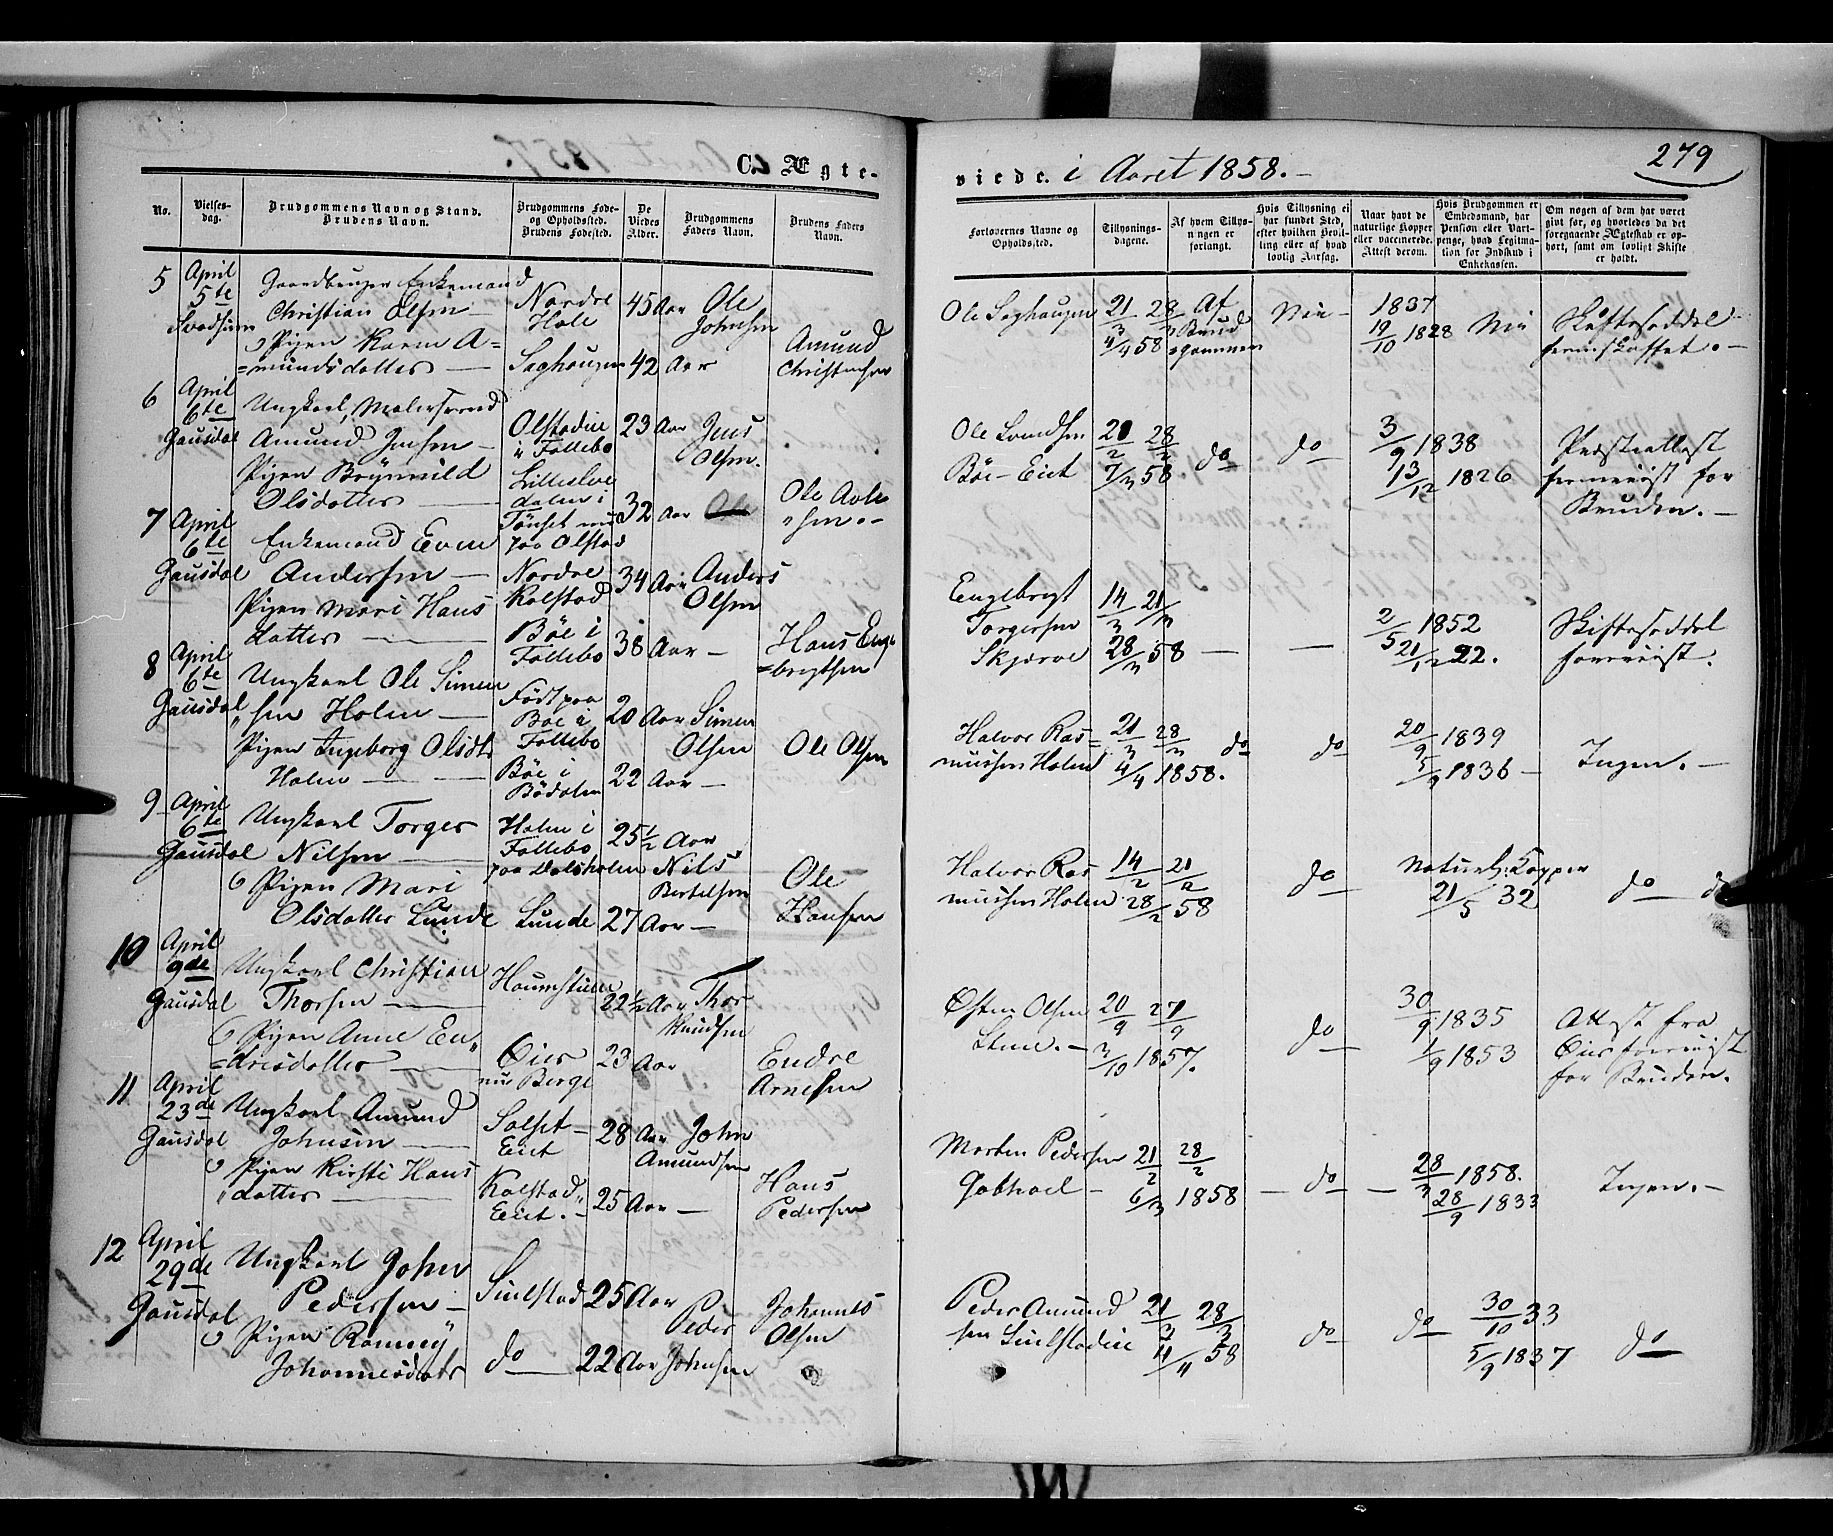 279
C. Ægte-
viede. i Aaret 1858.-
No.
Vielses-
dag.
Brudgommens Navn og Stand.
Brudens Navn.
Brudgommens Føde-
og Opholdssted.
Brudens Fødested.
De
Viedes
Alder.
Brudgommens
Faders Navn.
Brudens Faders
Navn.
Forlovernes Navne og
Opholdssted.
Tillysnings-
dagene.
Af hvem Tillys-
ningen er
forlangt.
Hvis Tillysning ei
har fundet Sted,
efter hvilken Bevil-
ling eller af hvad
lovlig Aarsag.
Naar havt de
naturlige Kopper
eller vaccinerede.
Attest derom.
Hvis Brudgommen er
Embedsmand, har
Pension eller Vart-
penge, hvad Legitima-
tion for Indskud i
Enkekassen.
Om nogen af dem har været
givt før, og hvorledes da det
foregaaende Ægteskab er op-
hørt, samt om lovligt Skifte
er holdt.
5
April
5te
Gaardbruger Enkemand
Christian Olsen
Nordre
45 Aar
Ole
Johnsen
Pigen Karen A=
=mundsdatter
Saghaugen
42 Aar
Amund
Christensen
Ole Saghaugen
21/3 28/3
4/4 58
Af
Brud
gommen
1837
19/10 1828
Skifteseddel
6
April
6te
Gausdal
Ungkarl, Malersvend
Amund Jensen
Olstadeie
i Follebo
23 Aar
Jens
Olsen.
Pigen Brynnild
Olsdatter
dalen i
Tønset nu
paa Olstad
32 Aar
Bøe-Eiet
28/2
7/3 58
do
do
3/9 1838
13/12 1826
Præsteattest
for
Bruden.-
7
April
6te
Gausdal
Enkemand Even
Andersen
Nordre
Kalstad
34 Aar
Anders
Olsen
Pigen Mari Hans
datter
Bøe i
Follebo
38 Aar-
Hans Enge
=bregtsen
Engebregt
Torgersen
14/3 21/3
28/3 58
2/5 1852
21/12 22.
Skifteseddel
foreviist.
8
April
6te
Gausdal
Ungkarl Ole Simen
"sen Holen
Født paa
Bøe i
Follebo
20 Aar
Simen
Olsen
Pigen Ingeborg Olsdtr
Holen
Bøe i
Bødalen
22 Aar-
Ole Olsen
Halvor Ras=
mussen Holen
21/3 28/3
4/4 1858.
do
do
20/9 1839
5/9 1836
Ingen.-
9
April
6te
Gausdal
Ungkarl Torger
Nilsen
Holen i
Follebo
paa Dalsholen
25 1/2 Aar
Nils
Bertelsen
Pigen Mari
Olsdatter Lunde
Lunde
27 Aar-
Ole
Hansen
Halvor Ras
mussen Holen
14/2 21/2
28/2 58
do
Naturl: Kopper
21/5 32
do
10
April
9de
Gausdal
Ungkarl Christian
Thorsen
22 1/2 Aar
Thor
Knudsen
Pigen Anne En"
=dresdatter
Øier
nu Berge
23 Aar
Endre
Arnesen
Østen Olsen
20/9 27/9
3/10 1857.
do
30/9 1835
1/9 1853
Attest fra
Øier foreviist
for Bruden.
11
April
23de
Gausdal
Ungkarl Amund
Johnsen
Solset-
Eiet
28 Aar
John
Amundsen
Pigen Kirsti Hans
"datter
Kalstad"
Eiet.-
25 Aar-
Hans
Pedersen
Morten Pedersen
21/2 28/2
6/3 1858
do
28/3 1858.
28/9 1833
Ingen.-
12
April
29de
Gausdal
Ungkarl John
Pedersen
25 Aar
Peder
Johnsen
Pigen Ronnøy
Johannesdatr
do
22 Aar
Johannes
Olsen
Peder Amund
sen
21/3 28/3
4/4 58
do
do
30/10 33
5/9 1837
do